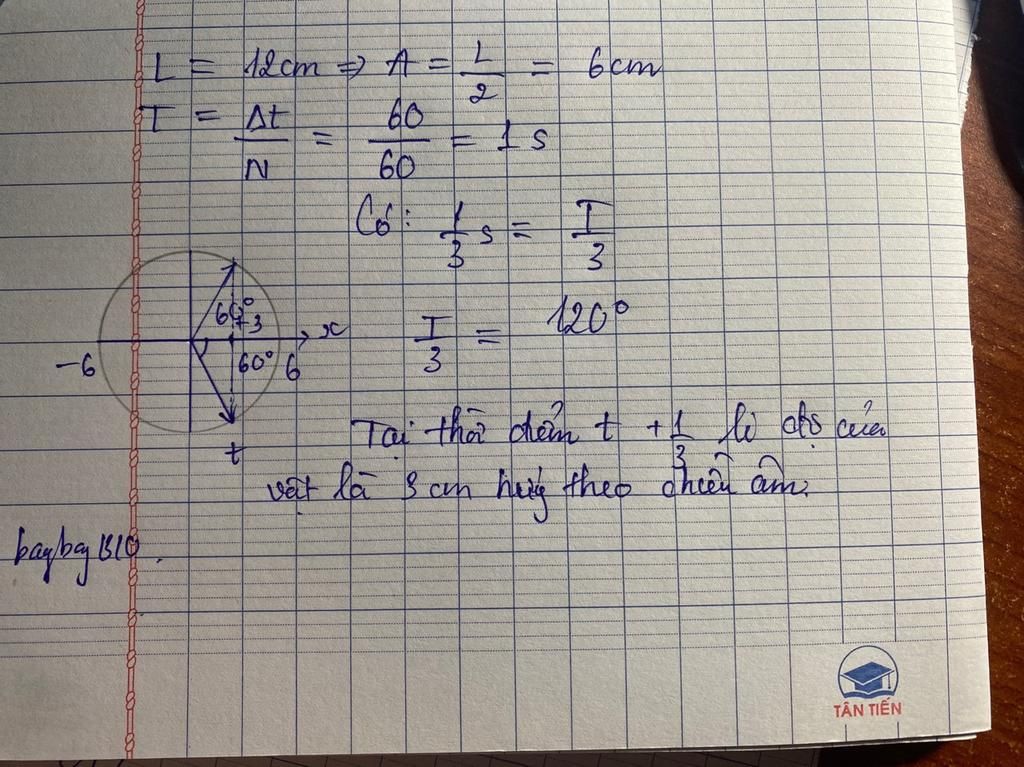 L = 12cm ⇒ A = L/2 = 6cm
T = Δt/N = 60/60 = 1s
Có: 1/3 s = T/3
60°
+3
x
-6
60° 6
T/3 = 120°
t
Tại thời điểm t + 1/3 li độ của
vật là 3 cm hướng theo chiều âm.
baybay B10.
TÂN TIẾN